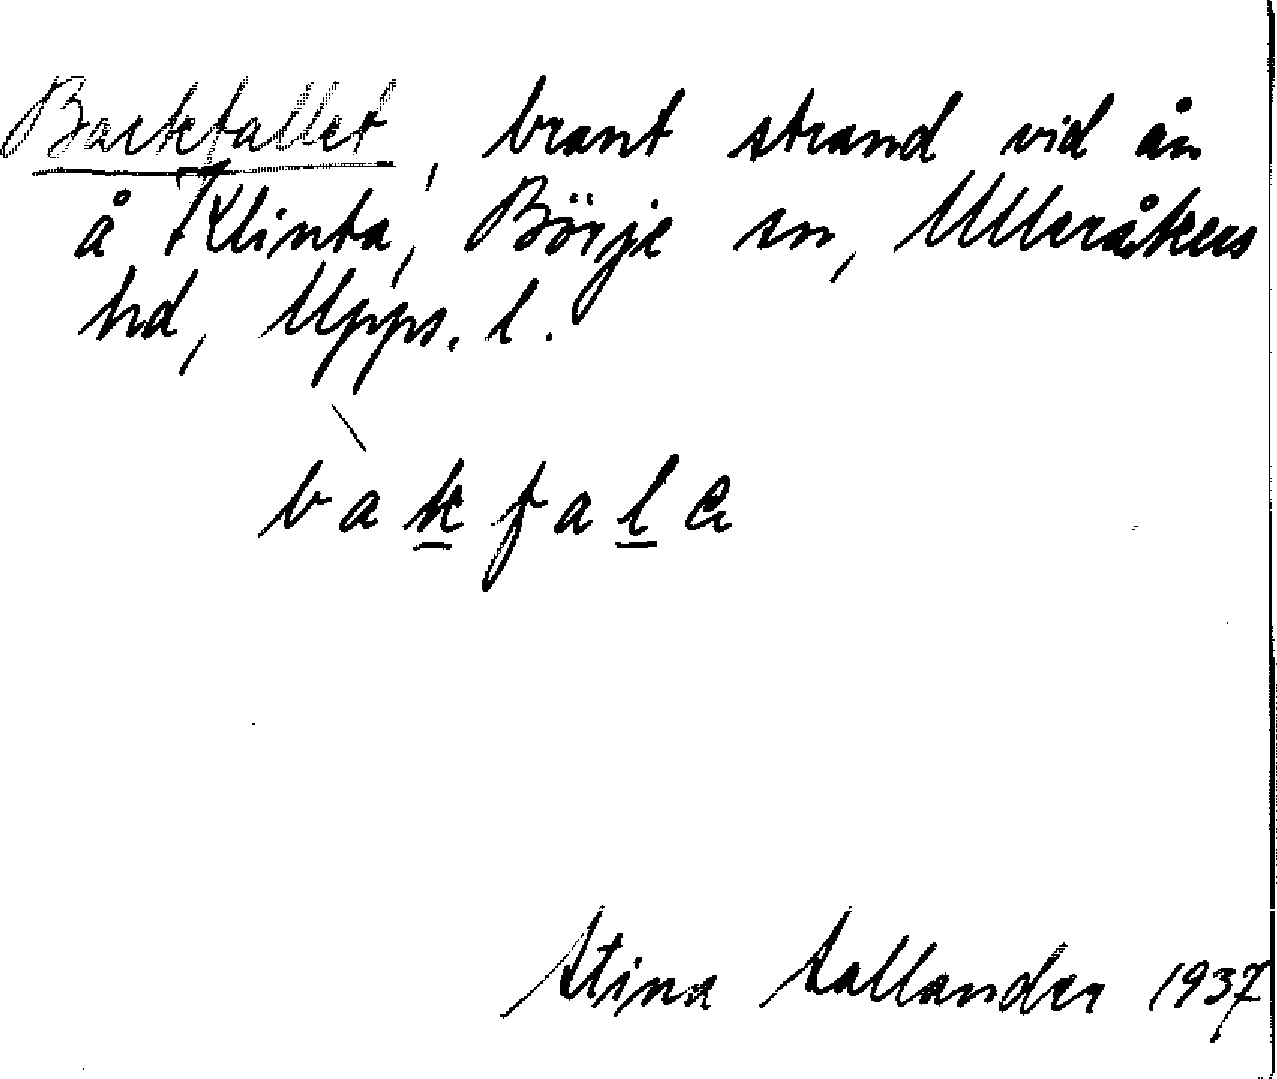 Backfallet, brant strand vid ån
å Klinta, Börje sn, Ulleråkers
hd, Upps. l.
bàkfale
Stina Sallander 1937